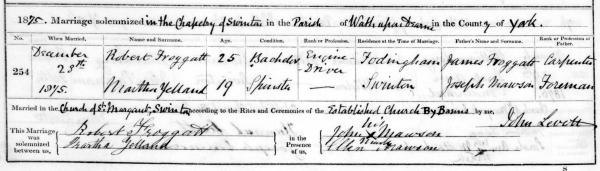 1875. Marriage solemnized in the Chapelry of Swinton in the Parish of Wath upon Dearne in the County of York.
No. When Married. Name and Surname. Age. Condition. Rank or Profession. Residence at the Time of Marriage. Father's Name and Surname. Rank or Profession of Father.
254 December 28th 1875. Robert Froggatt 25 Bachelor Engine-Driver Frodingham James Froggatt Carpenter
Martha Yelland 19 Spinster — Swinton Joseph Mawson Foreman
Married in the Church of St Margaret, Swinton according to the Rites and Ceremonies of the Established Church By Banns by me,
John Levett
This Marriage was solemnized between us, Robert Froggatt Martha Yelland in the Presence of us, John his X Mark Mawson Ellen Mawson
8